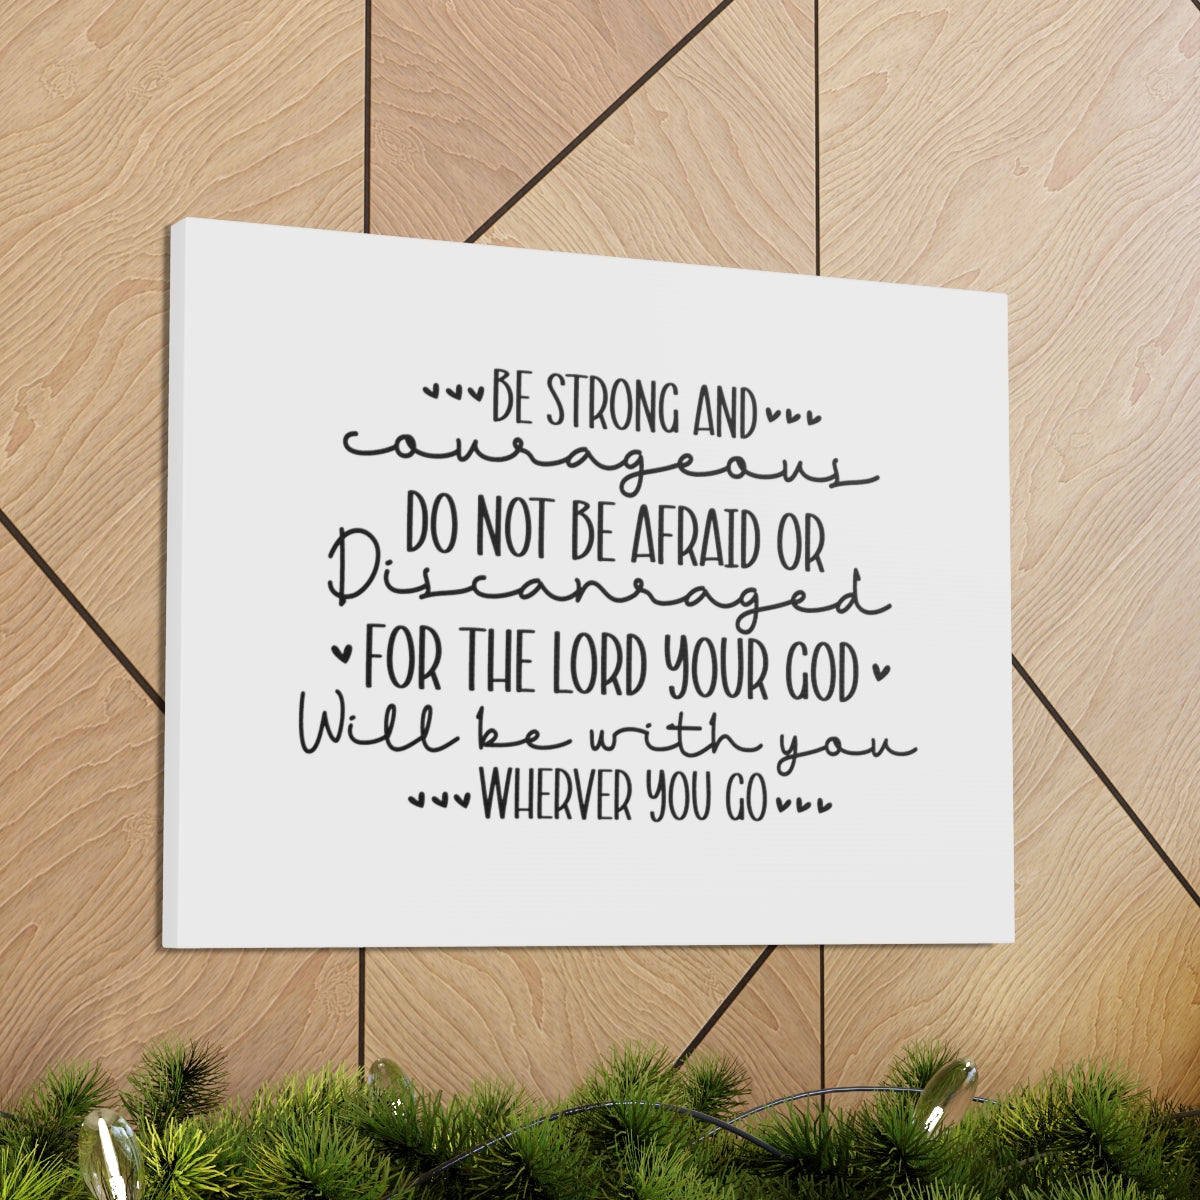 BE STRONG AND
courageous
DO NOT BE AFRAID OR
Discanraged
FOR THE LORD YOUR GOD
Will be with you
WHERVER YOU GO